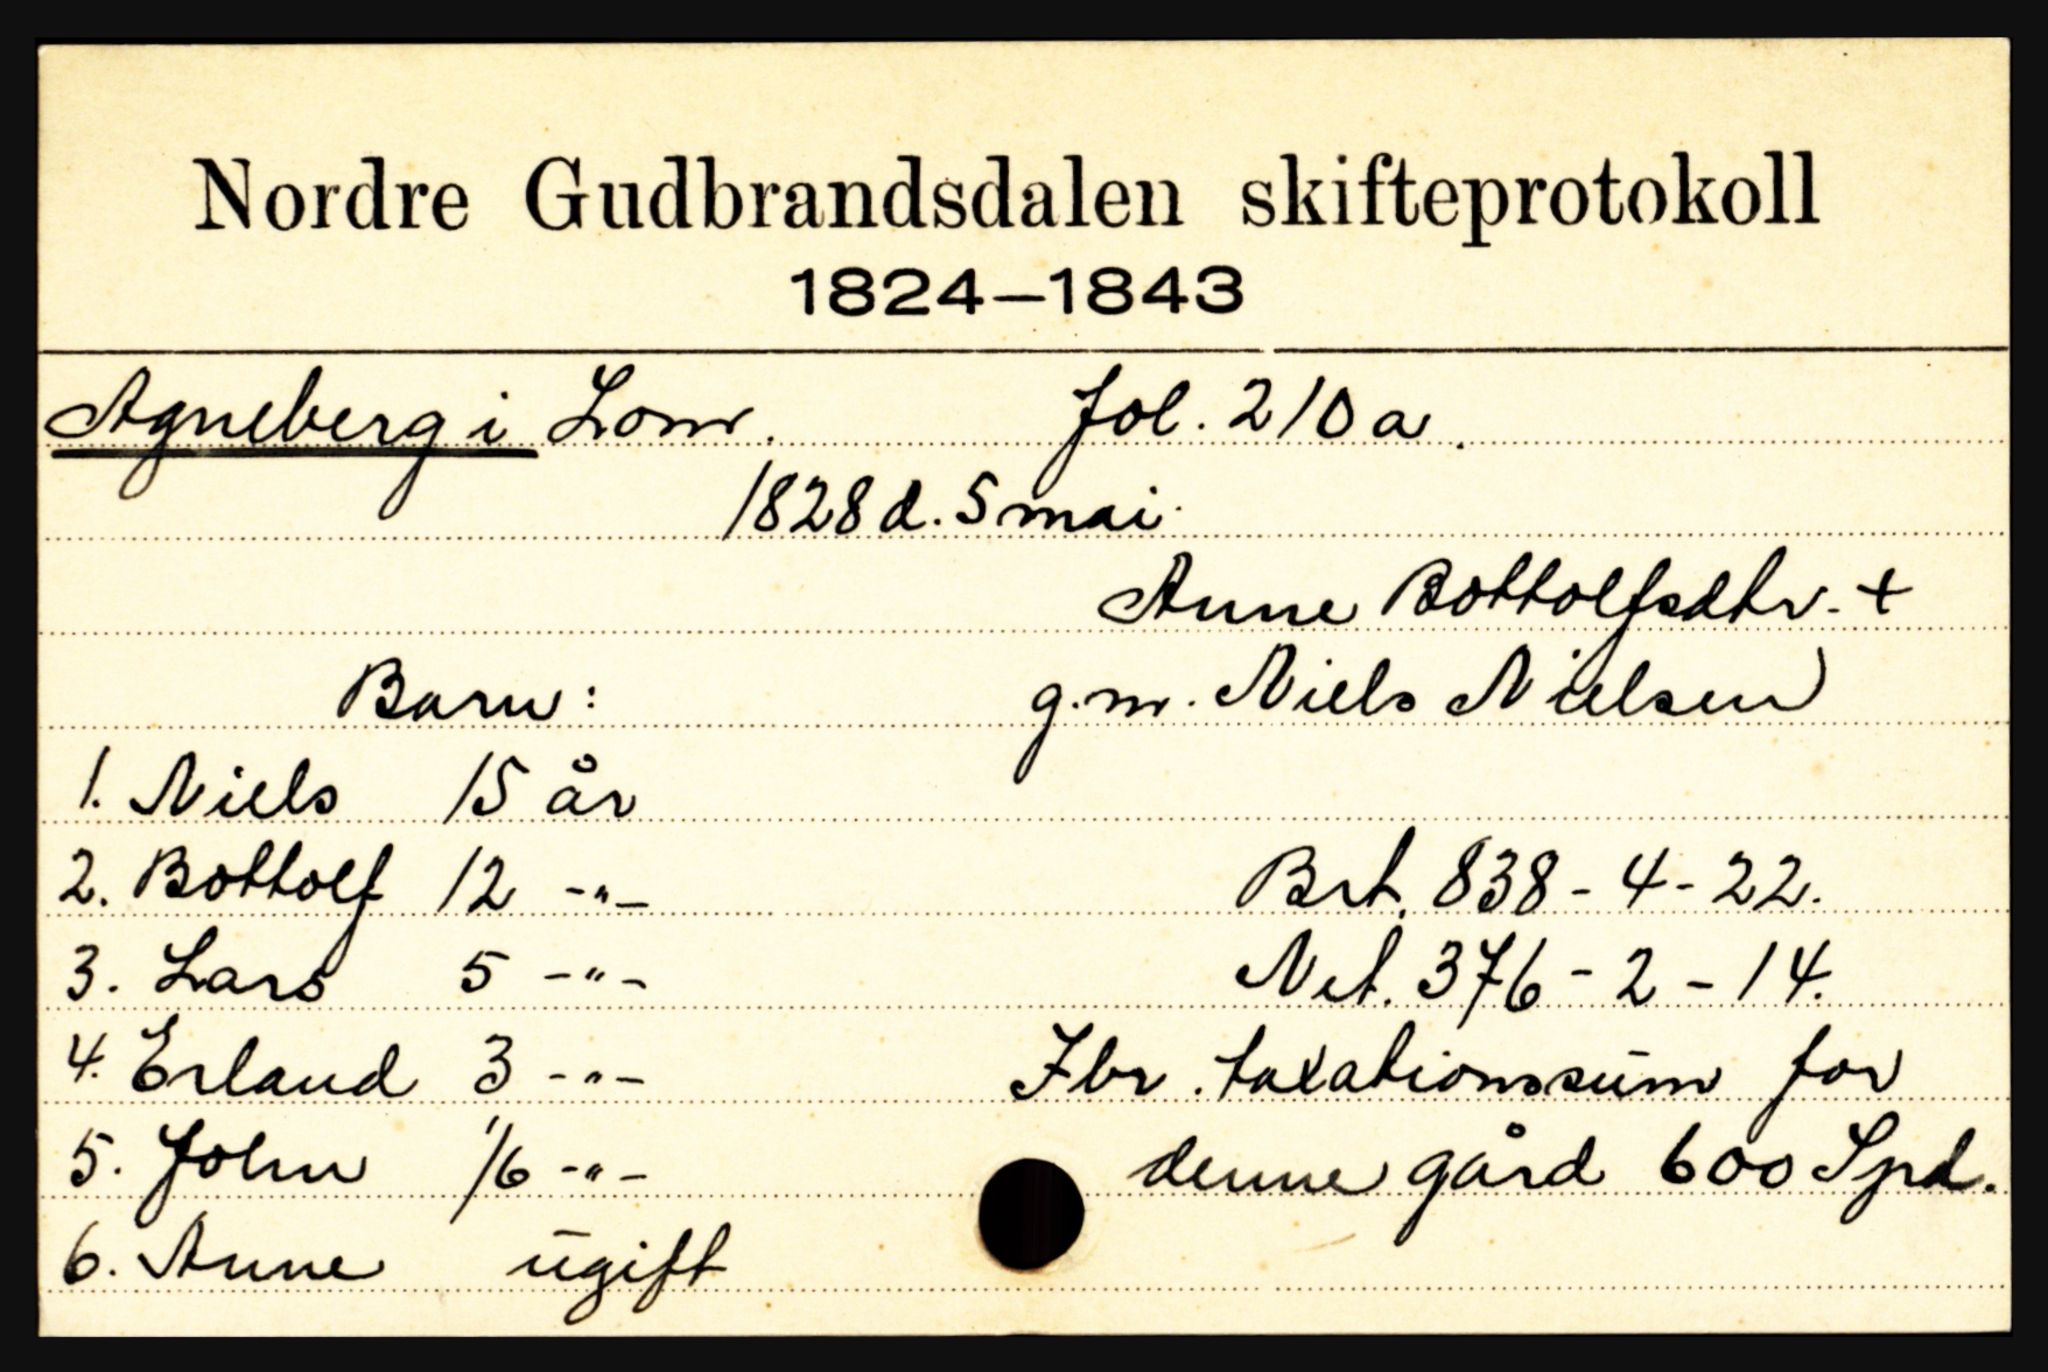 Nordre Gudbrandsdalen skifteprotokoll
1824—1843
Agneberg i Lom. fol. 210 a.
1828 d. 5 mai.
Anne Bottolfsdtr. +
Barn: g.m. Niels Nielsen
1. Niels 15 år
2. Bottolf 12 -"- Brt. 838 - 4 - 22.
3. Lars 5 -"- Net. 376 - 2 - 14.
4. Erland 3 -"- Ibr. taxationssum for
5. John 1/6 -"- denne gård 600 Spd.
6. Anne ugift